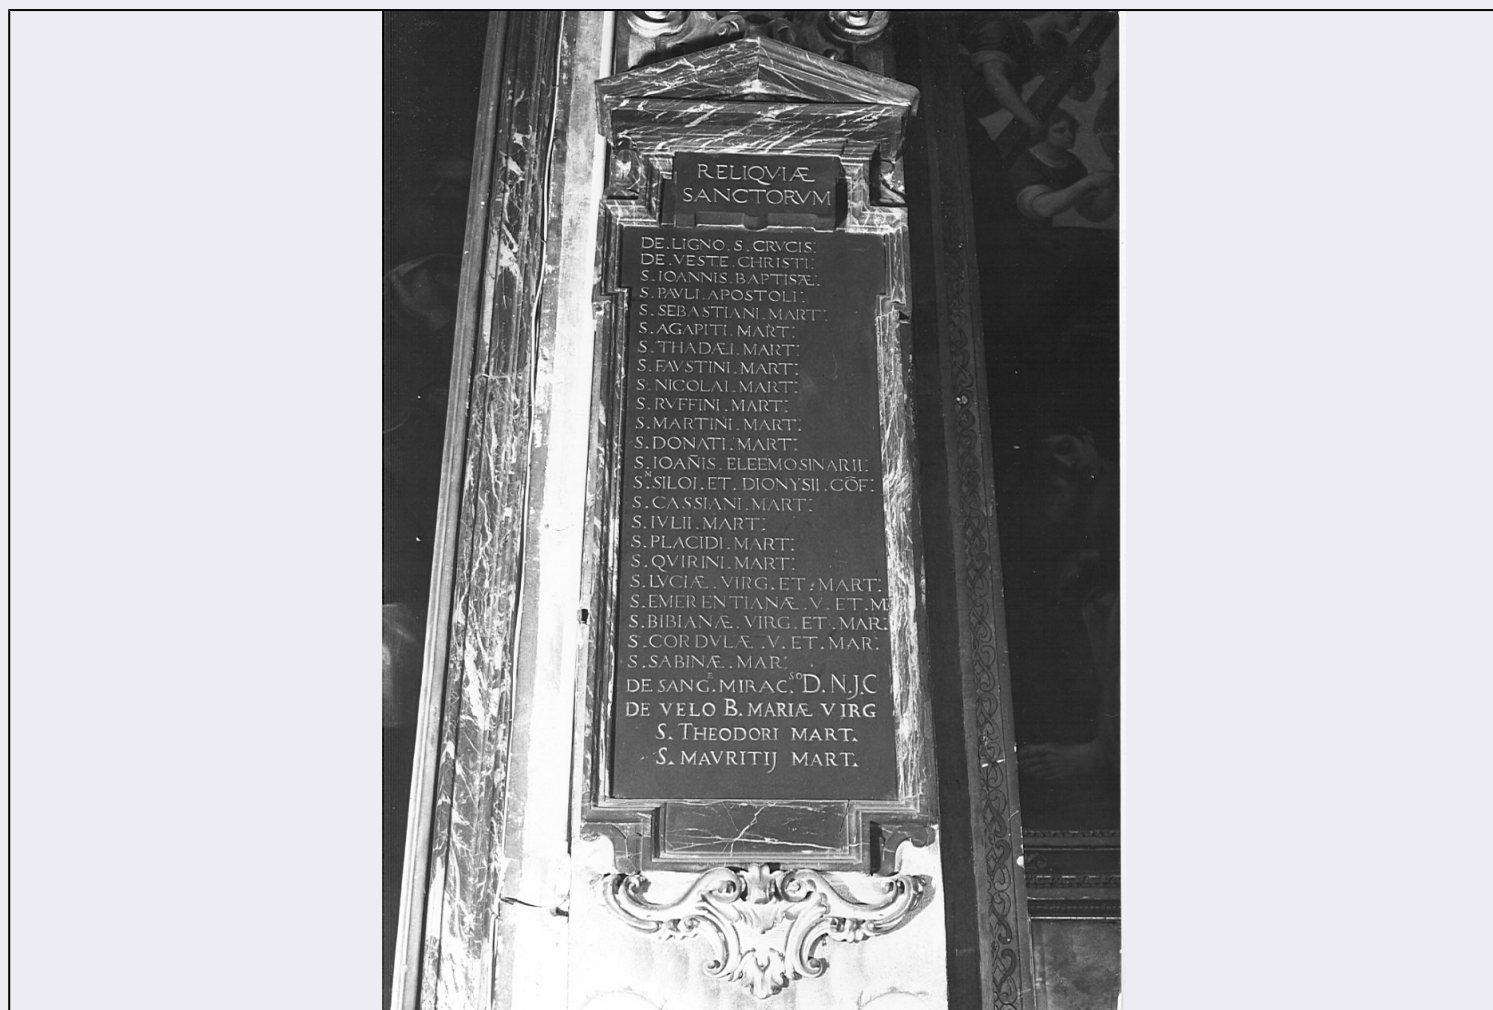 RELIQVIÆ
SANCTORVM
DE.LIGNO.S.CRVCIS:
DE.VESTE.CHRISTI:
S.IOANNIS.BAPTISÆ:
S.PAVLI.APOSTOLI:
S.SEBASTIANI.MART:
S.AGAPITI.MART:
S.THADÆI.MART:
S.FAVSTINI.MART:
S.NICOLAI.MART:
S.RVFFINI.MART:
S.MARTINI.MART:
S.DONATI.MART:
S.IOAÑIS.ELEEMOSINARII:
S.ᴺSILOI.ET.DIONYSII.CÕF:
S.CASSIANI.MART:
S.IVLII.MART:
S.PLACIDI.MART:
S.QVIRINI.MART:
S.LVCIÆ.VIRG.ET.MART:
S.EMERENTIANÆ.V.ET.M
S.BIBIANÆ.VIRG.ET.MAR:
S.CORDVLÆ.V.ET.MAR:
S.SABINÆ.MAR:
DE SANG.ᴱ MIRAC.ˢᴼ D.N.J.C
DE VELO B.MARIÆ VIRG
S.THEODORI MART.
S.MAVRITIJ MART.